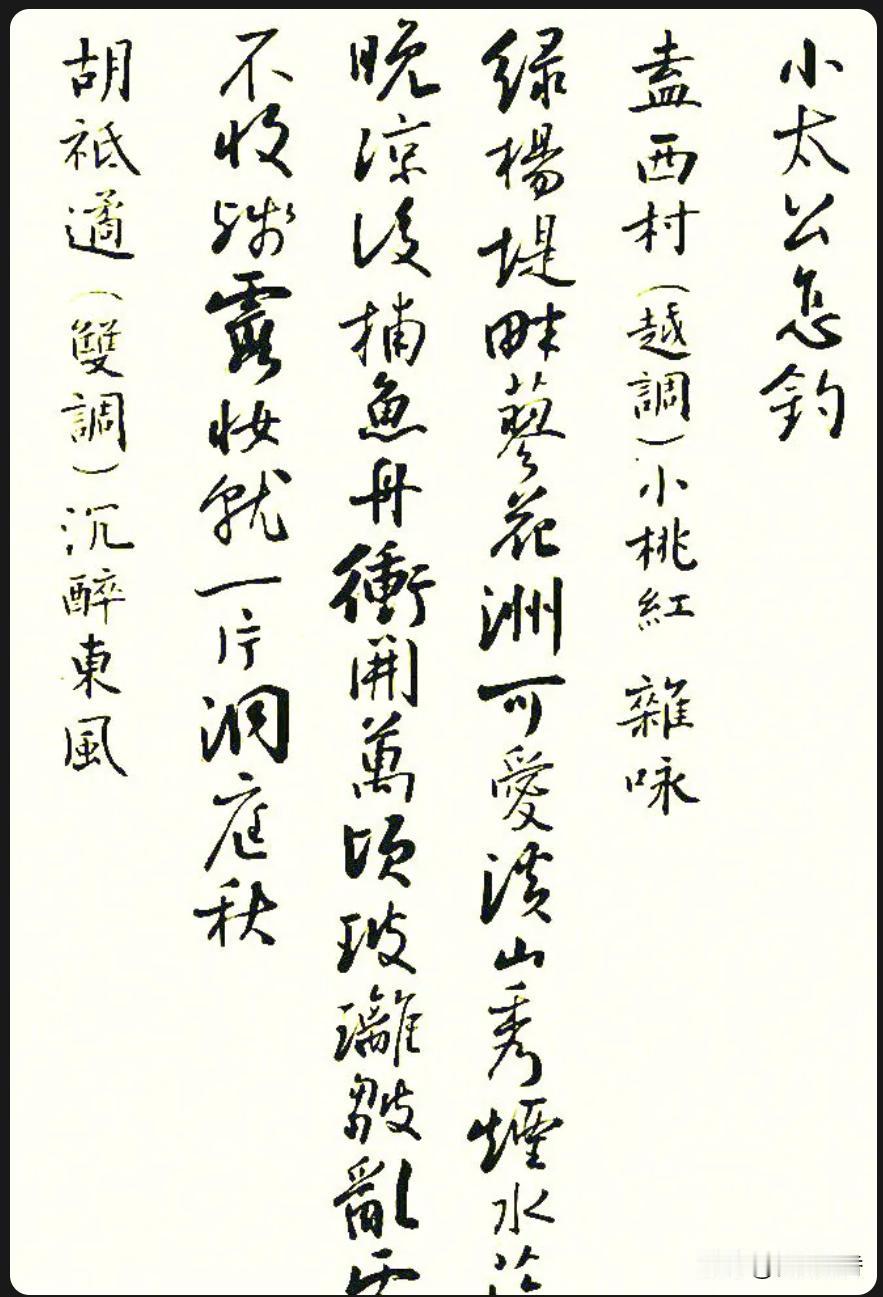 小太公怎釣
盍西村（越調）小桃紅 雜咏
绿楊堤畔蓼花洲可愛溪山秀煙水
晚凉後捕魚舟衝開萬頃玻璃皱亂
不收殘露妝就一片洞庭秋
胡祗遹（雙調）沉醉東風